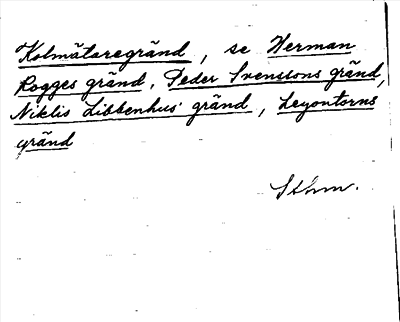 Kolmätaregränd, se Herman
Rogges gränd, Peder Svenssons gränd,
Niklis Libbenhus' gränd, Leyontorns
gränd
Sthm.